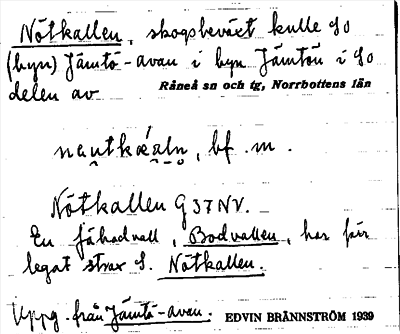 Nötkallen, skogsbeväxt kulle SO
(byn) Jämtö-avan i byn Jämtön i SO
delen av Råneå sn och tg, Norrbottens län
nau̯tkǽaln, bf. m.
Nötkallen G 37 NV.
En fäbodvall, Bodvallen, har förr
legat strax S. Nötkallen.
Uppg. från Jämtö-avan. EDVIN BRÄNNSTRÖM 1939